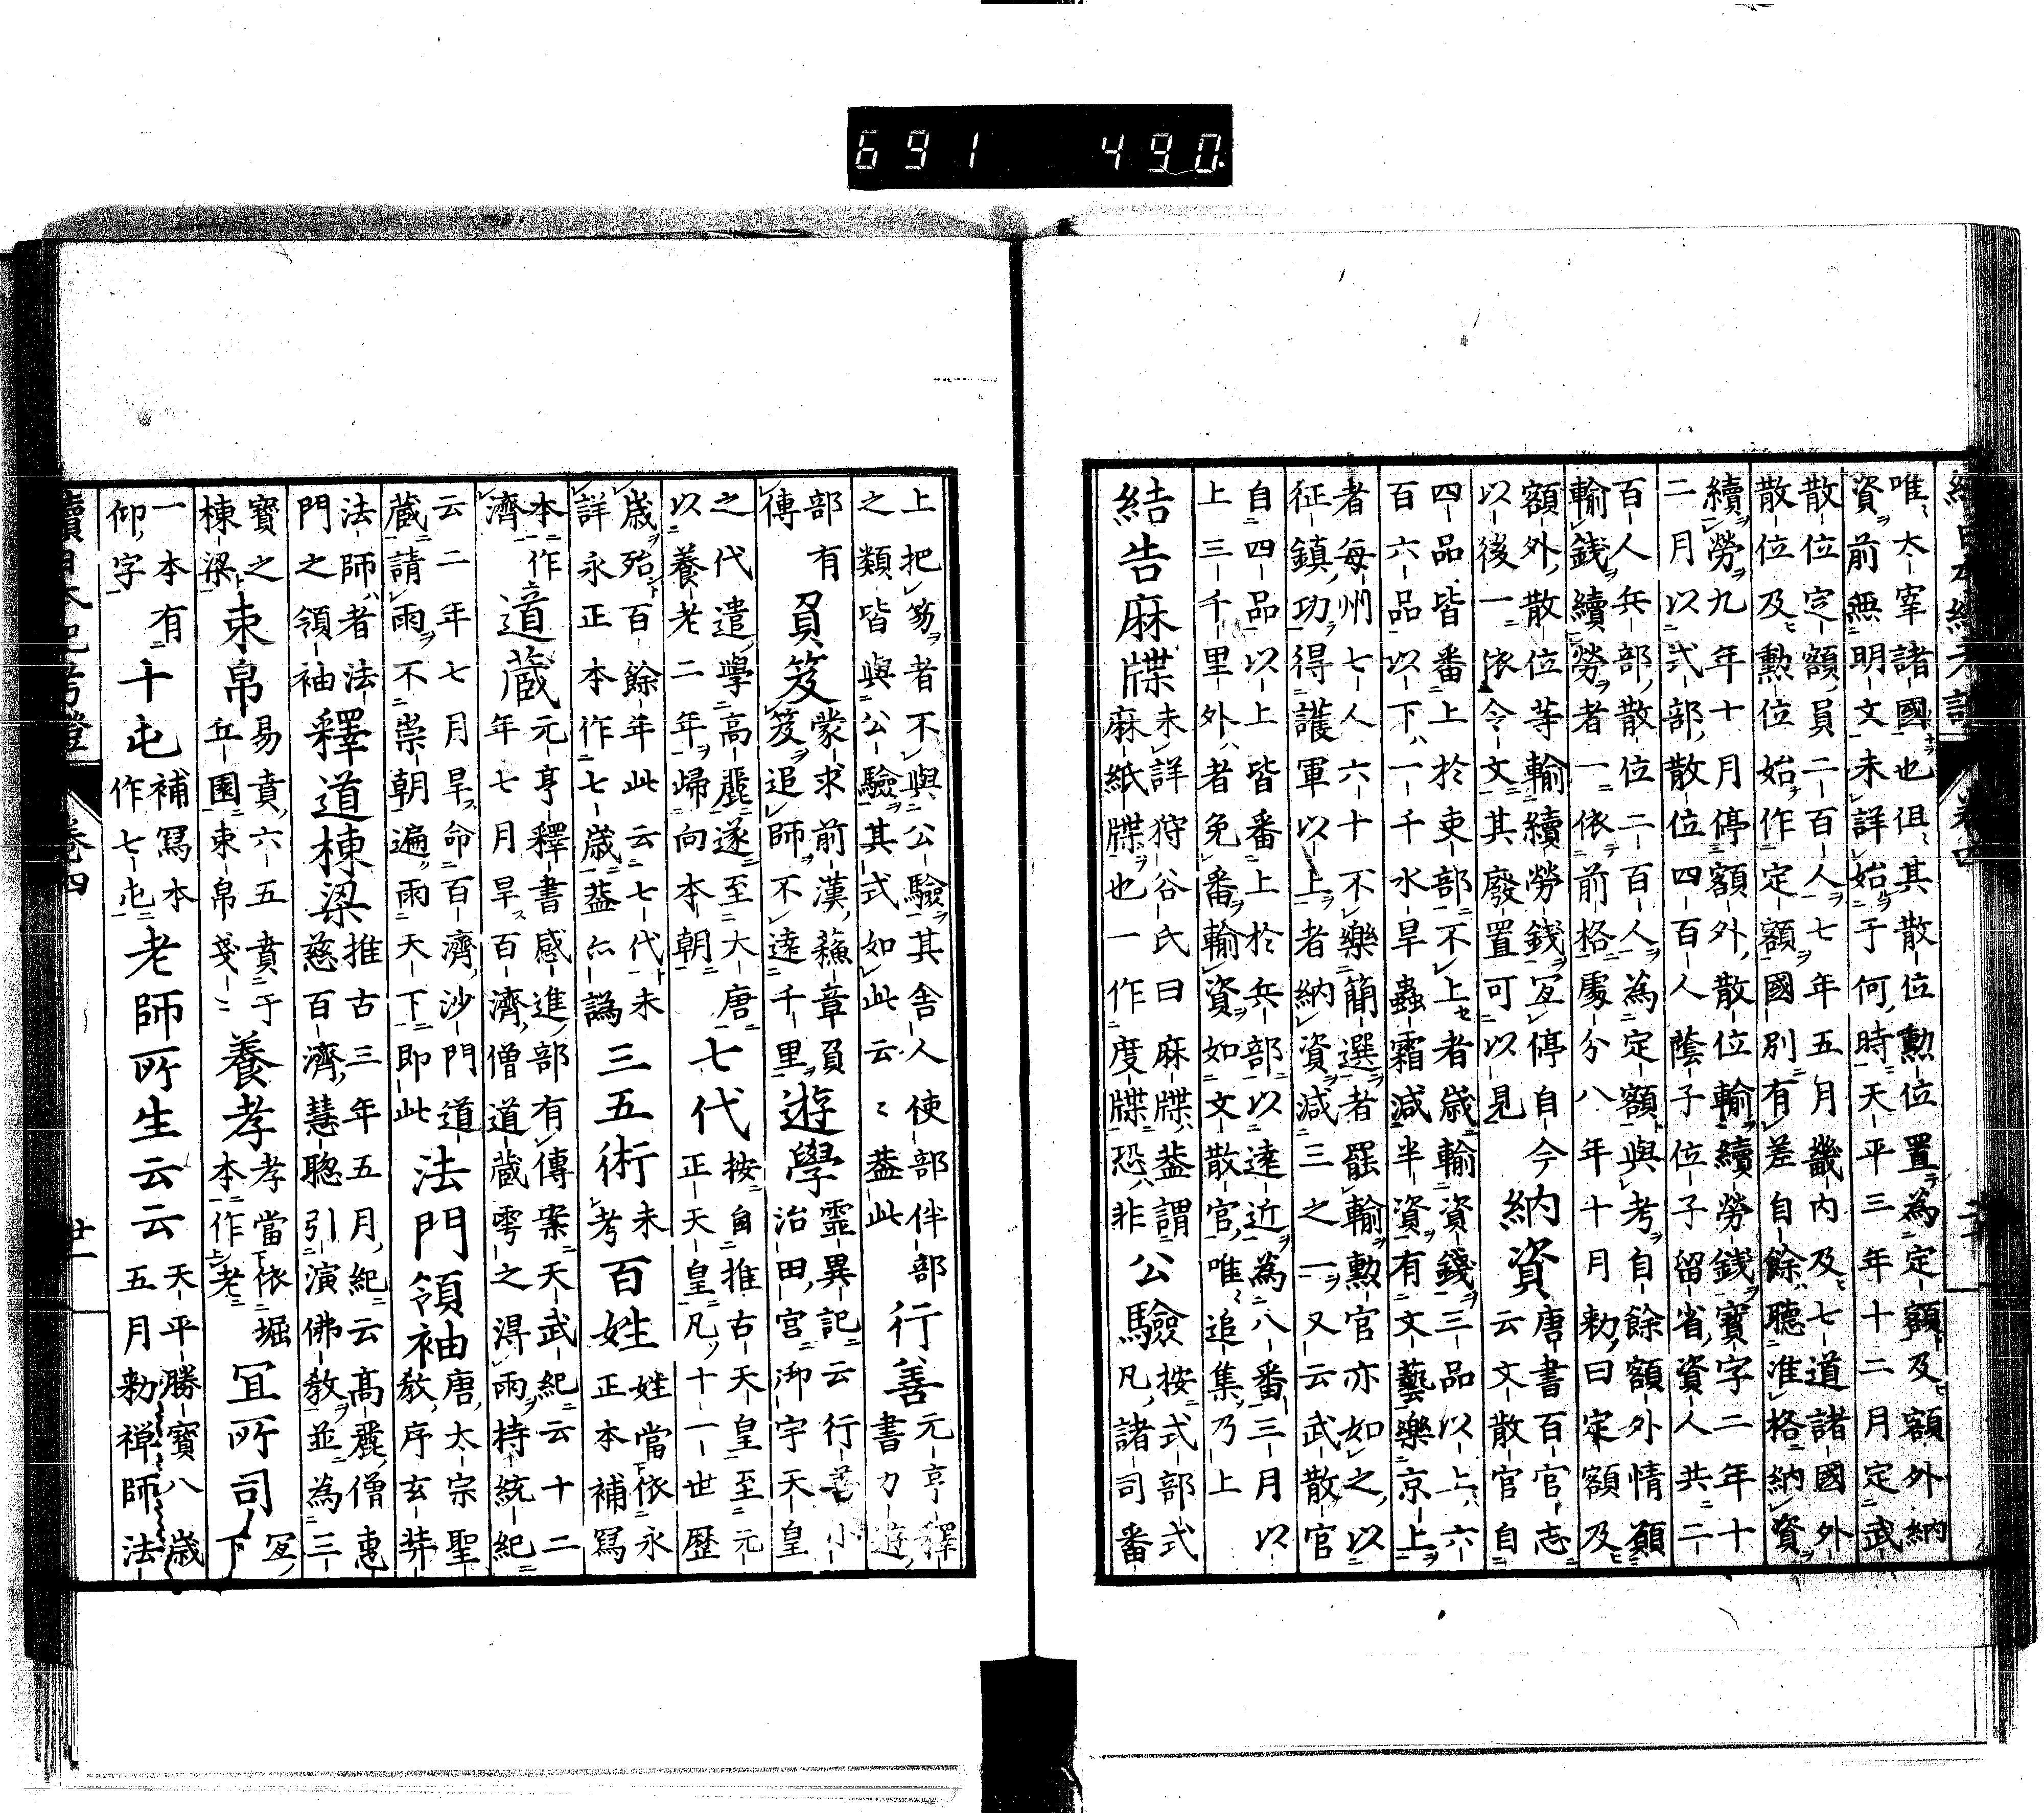 691 490.
唯太宰諸國也但其散位勳位置為定額及額外納
資前無明文未詳始于何時天平三年十二月定武
散位定額員二百人七年五月畿内及七道諸國外
散位及勳位始作定額國別有差自餘聽准格納資
續勞九年十月停額外散位輸續勞錢寶字二年十
二月以式部散位四百人蔭子位子留省資人共二
百人兵部散位二百人為定額與考自餘額外情願
輸錢續勞者一依前格處分八年十月勅曰定額及
額外散位等輸續勞錢宜停自今
以後一依令文其廢置可以見
納資
唐書百官志
云文散官自
四品皆番上於吏部不上者歲輸資錢三品以上六
百六品以下一千水旱蟲霜減半資有文藝樂京上
者每州七人六十不樂簡選者罷輸勳官亦如之以
征鎮功得護軍以上者納資減三之一又云武散官
自四品以上皆番上於兵部以遠近為八番三月以
上三千里外者免番輸資如文散官唯追集乃上
結告麻牒
未詳狩谷氏曰麻牒蓋謂
麻紙牒也一作度牒恐非
公驗
按式部式
凡諸司番
上把笏者不與公驗其舎人使部伴部
之類皆與公驗其式如此云云蓋此
行善
元亨釋
書力遊
部有
傳
負笈
蒙求前漢蘓章負
笈追師不遠千里
遊學
靈異記云行善小
治田宮御宇天皇
之代遣學高麗遂至大唐
以養老二年歸向本朝
七代
按自推古天皇至元
正天皇凡十一世歷
歲殆百餘年此云七代未
詳永正本作七歲蓋亦譌
三五術
未
考
百姓
姓當依永
正本補寫
本作
濟
道藏
元亨釋書感進部有傳案天武紀云十二
年七月旱百濟僧道藏雩之得雨持統紀
云二年七月旱命百濟沙門道
藏請雨不崇朝遍雨天下即此
法門領袖
唐太宗聖
教序玄奘
法師者法
門之領袖
釋道棟梁
推古三年五月紀云高麗僧惠
慈百濟慧聰引演佛教並為三
寶之
棟梁
束帛
易賁六五賁于
丘園束帛戔々
養孝
孝當依堀
本作老
宜所司
宜
下
一本有
仰字
十屯
補寫本
作七屯
老師所生云云
天平勝寶八歲
五月勅禅師法
續日本紀考證
卷四
廿一